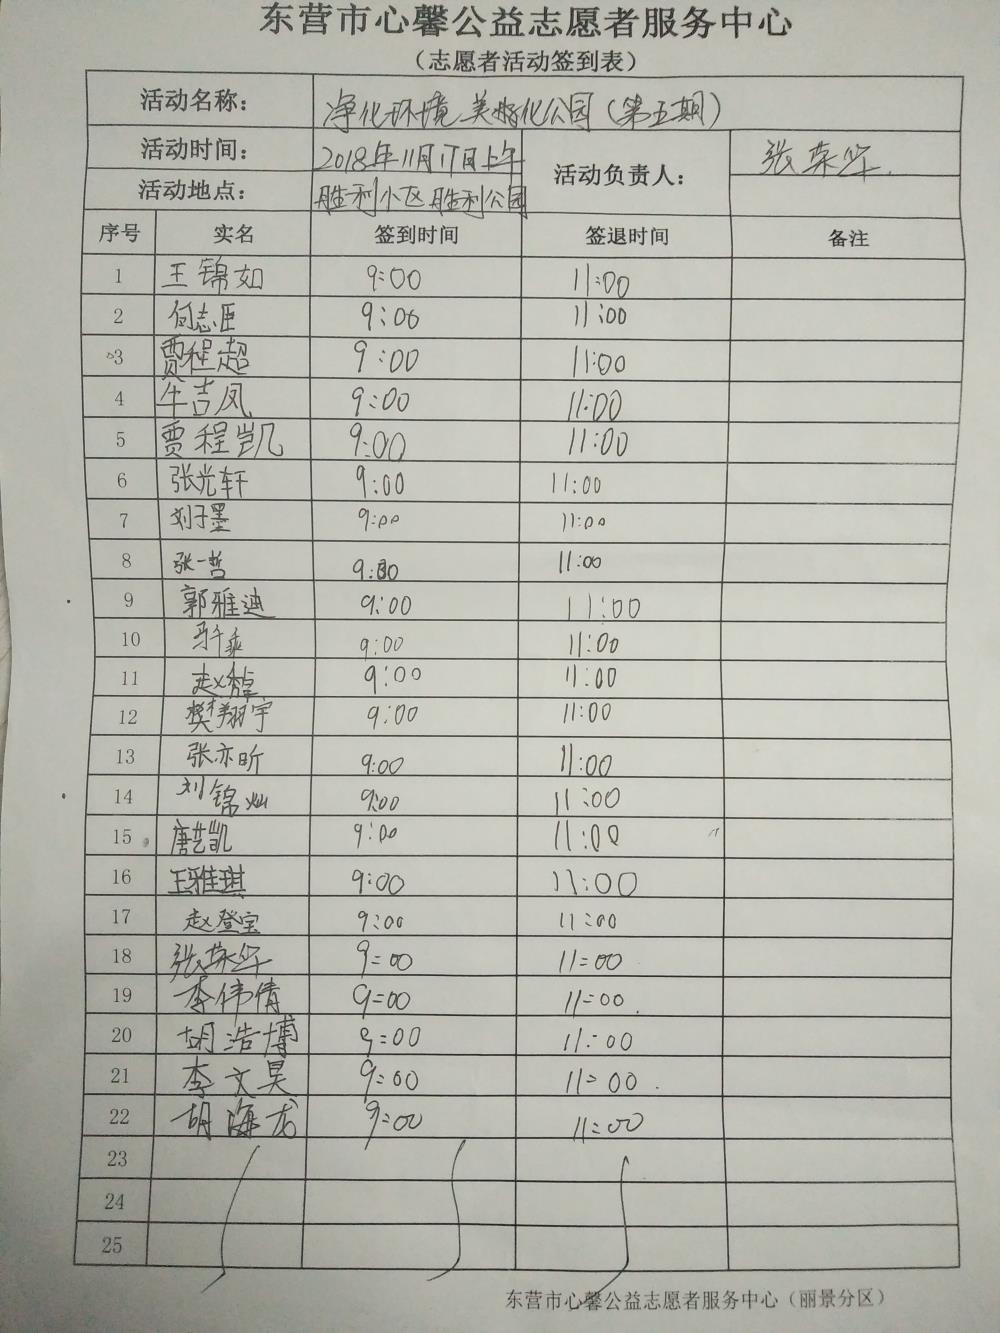 东营市心馨公益志愿者服务中心
（志愿者活动签到表）
活动名称： 净化环境 美好化公园（第五期）
活动时间： 2018年11月17日上午 活动负责人： 张荣华
活动地点： 胜利小区 胜利公园
序号 实名 签到时间 签退时间 备注
1 王锦如 9:00 11:00
2 何志臣 9:00 11:00
3 贾程超 9:00 11:00
4 牛吉凤 9:00 11:00
5 贾程凯 9:00 11:00
6 张光轩 9:00 11:00
7 刘子墨 9:00 11:00
8 张一哲 9:00 11:00
9 郭雅迪 9:00 11:00
10 9:00 11:00
11 9:00 11:00
12 樊翔宇 9:00 11:00
13 张亦昕 9:00 11:00
14 刘锦灿 9:00 11:00
15 唐艺凯 9:00 11:00
16 王雅琪 9:00 11:00
17 赵登宝 9:00 11:00
18 张荣华 9=00 11=00
19 李伟倩 9=00 11=00
20 胡浩博 9=00 11:00
21 李文昊 9=00 11=00
22 胡海龙 9=00 11=00
23
24
25
东营市心馨公益志愿者服务中心（丽景分区）